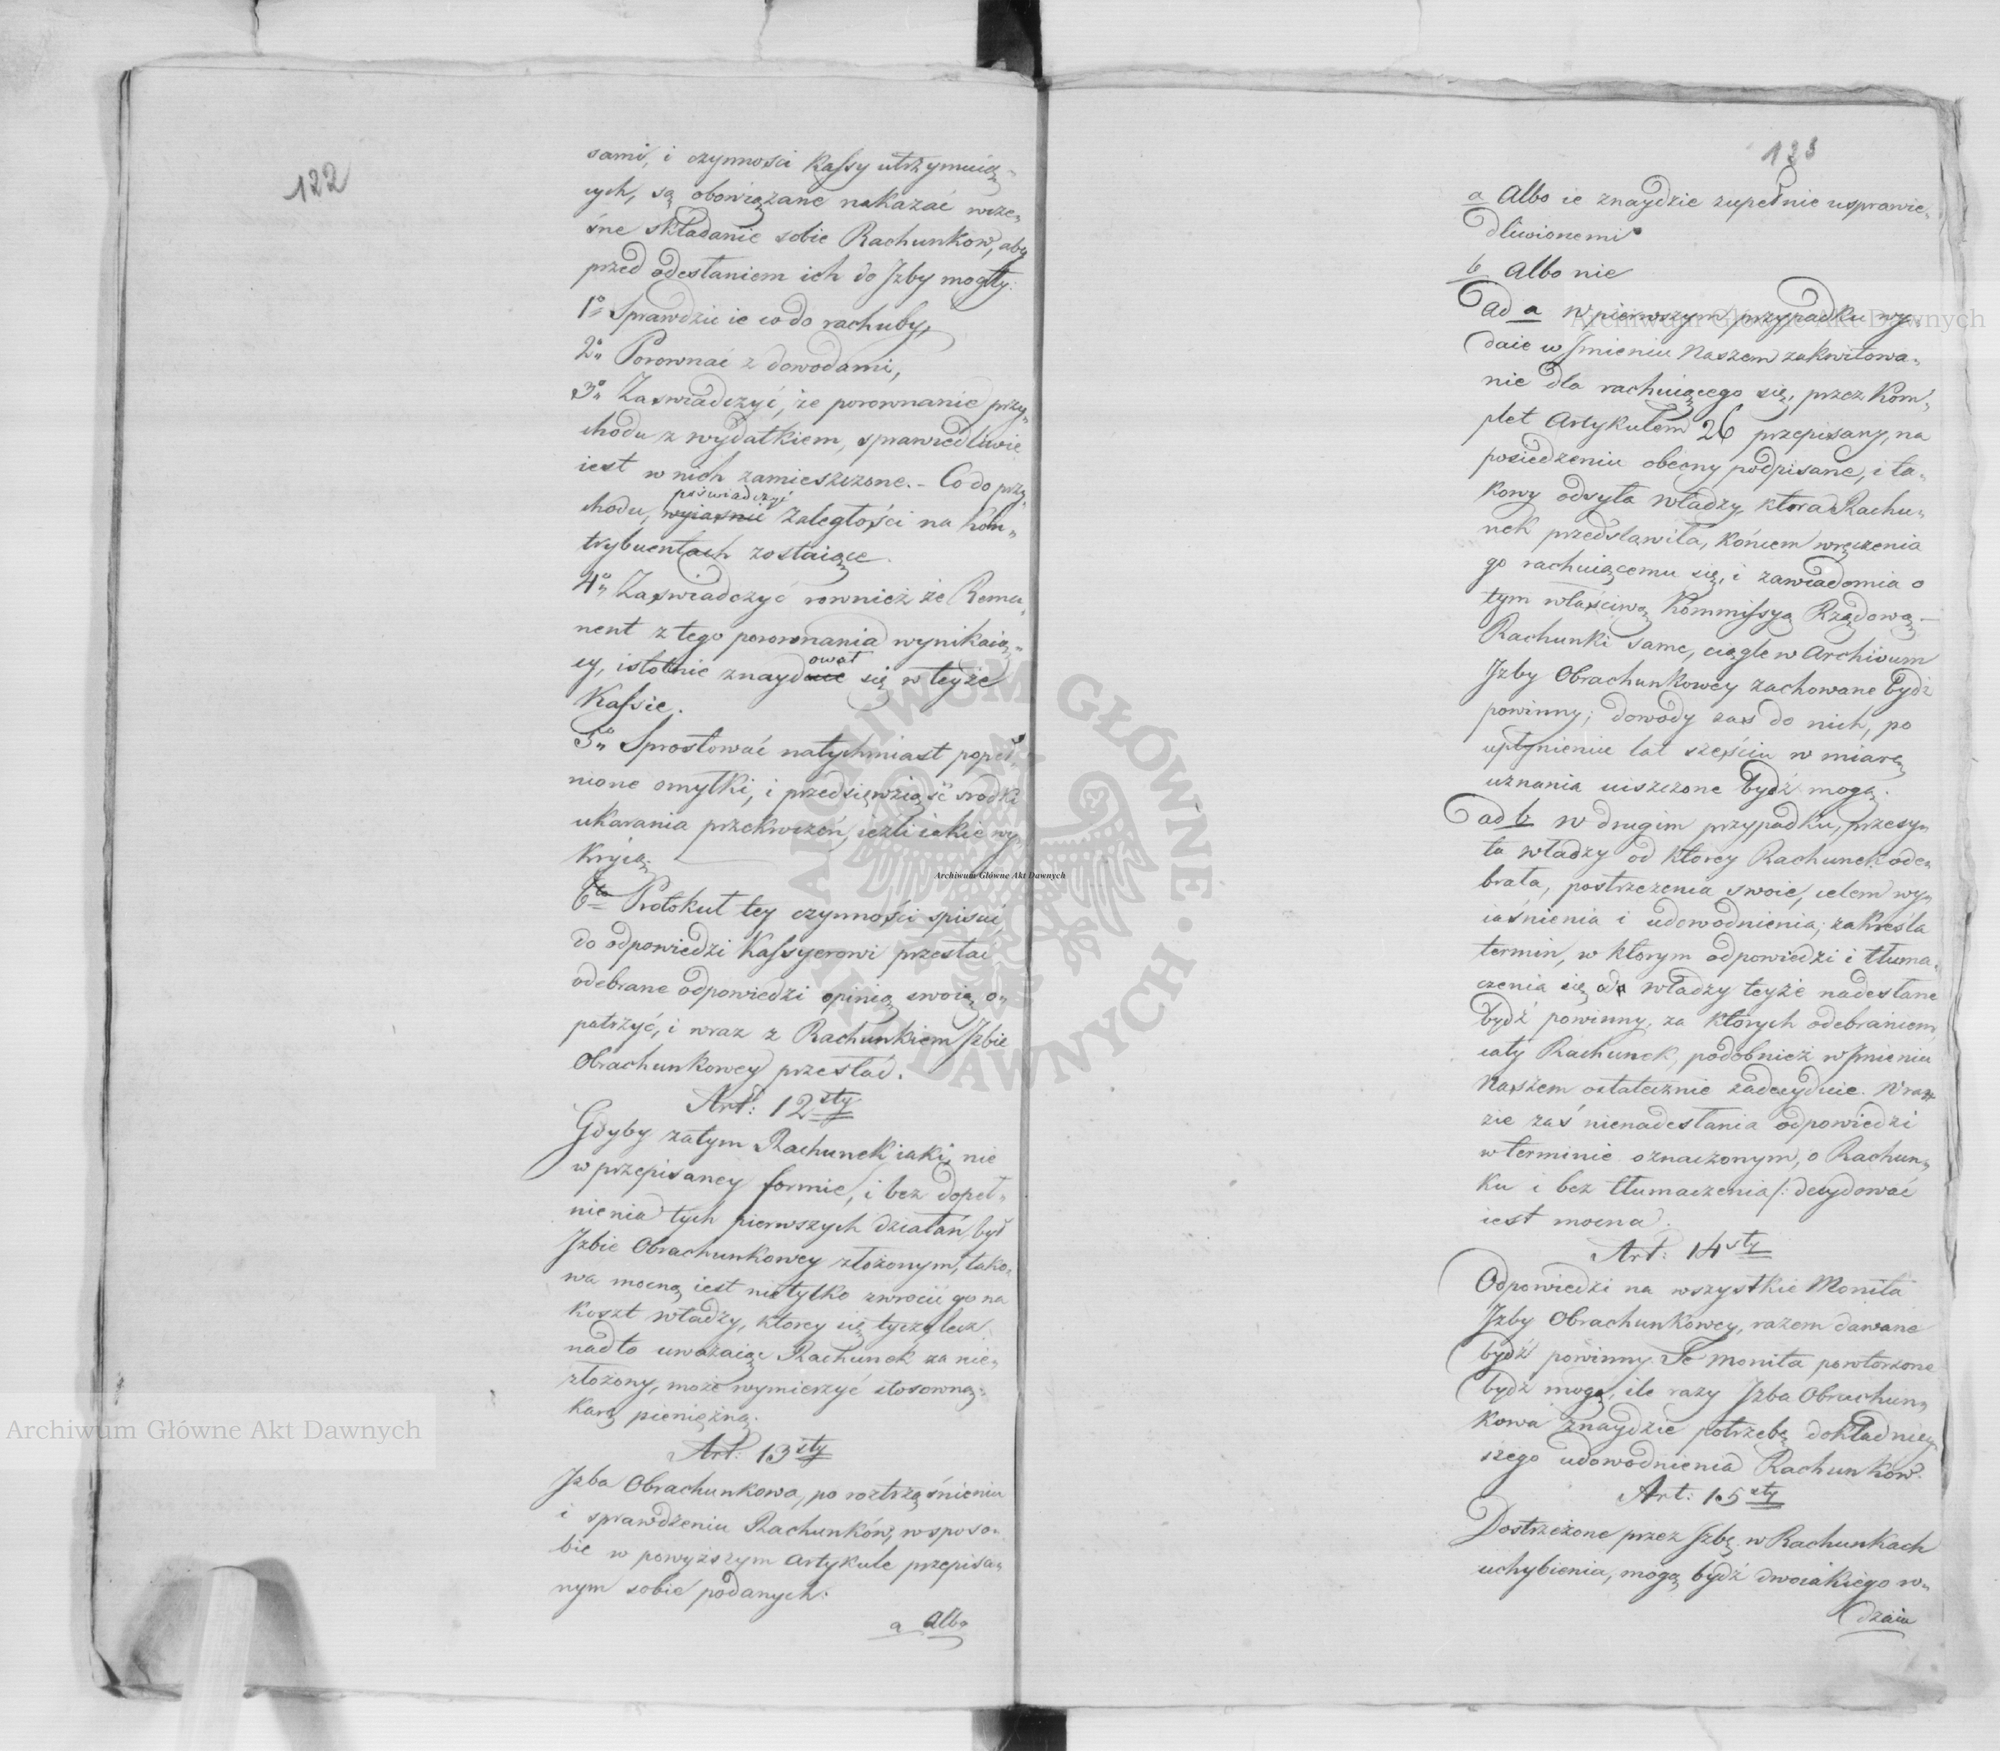 122
sami, i czynności Kassy utrzymuią„
cych, są obowiązane nakazać wcze„
śne składanie sobie Rachunkow, aby
przed odesłaniem ich do Jzby mogły:
1o Sprawdzić ie co do rachuby,
2o Porownać z dowodami,
3o Zaswiadczyć, że porownanie przy„
chodu z wydatkiem, sprawiedliwie
iest w nich zamieszczone. – Co do przy„
chodu, wyiaśnić poświadczyć zaległości na Kon„
trybuentach zostaiące.
4o Zaświadczyć rownież że Rema„
nent z tego porownania wynikaią„
cy, istotnie znaydował się w teyże
Kassie.
5o Sprostować natychmiast popeł„
nione omyłki, i przedsięwziąść srodki
ukarania przekroczeń, ieżli iakie wy„
Kryią.
6to Protokuł tey czynności spisać,
do odpowiedzi Kassyerowi przesłać
odebrane odpowiedzi opinią swoią o„
patrzyć, i wraz z Rachunkiem Jzbie
Obrachunkowey przesłać.
Art: 12sty
Gdyby zatym Rachunek iaki, nie
w przepisaney formie, i bez dopeł„
nienia tych pierwszych działań, był
Jzbie Obrachunkowey złożonym, tako„
wa mocną iest nietylko zwrócić go na
koszt władzy, ktorey się tycze lecz
nadto uważaiąc Rachunek za nie„
złożony, może wymierzyć stosowną„
Karę pieniężną.
Art: 13sty
Jzba Obrachunkowa, po roztrząśnieniu
i sprawdzeniu Rachunków, w sposo„
bie w powyższym Artykule przepisa„
nym sobie podanych:
a Albo
123
a Albo ie znaydzie zupełnie usprawie„
dliwionemi
b Albo nie
Ad a W pierwszym przypadku wy„
daie w Jmieniu Naszem zakwitowa„
nie dla rachuiącego się, przez Kom„
plet Artykułem 26 przepisany, na
posiedzeniu obecny podpisane, i ta„
kowy odsyła władzy ktora Rachu„
nek przedstawiła, końcem wręczenia
go rachuiącemu się, i zawiadomia o
tym właściwą Kommissyą Rządową –
Rachunki same, ciągle w Archivum
Jzby Obrachunkowey zachowane bydź
powinny; dowody zaś do nich, po
upłynieniu lat sześciu w miarę
uznania niszczone bydź mogą.
ad b W drugim przypadku, przesy„
ła władzy od ktorey Rachunek ode„
brała, postrzeżenia swoie, celem wy„
iaśnienia i udowodnienia; zakreśla
termin, w ktorym odpowiedzi i tłuma„
czenia się od władzy teyże nadesłane
bydź powinny, za których odebraniem
cały Rachunek, podobnież w Jmieniu
Naszem ostatecznie zadecyduie. W raz„
zie zaś nienadesłania odpowiedzi
w terminie oznaczonym, o Rachun„
ku i bez tłumaczenia /: decydować
iest mocna.
Art: 14sty
Odpowiedzi na wszystkie Monita
Jzby Obrachunkowey, razem dawane
bydź powinny. Te Monita powtorzone
bydź mogą, ile razy Jzba Obrachun„
kowa znaydzie potrzebę dokładniey
szego udowodnienia Rachunków.
Art: 15sty
Dostrzeżone przez Jzbę w Rachunkach
uchybienia, mogą bydź dwoiakiego ro„
dzaiu
Archiwum Główne Akt Dawnych
Archiwum Główne Akt Dawnych
Archiwum Główne Akt Dawnych
ARCHIWUM GŁÓWNE AKT DAWNYCH